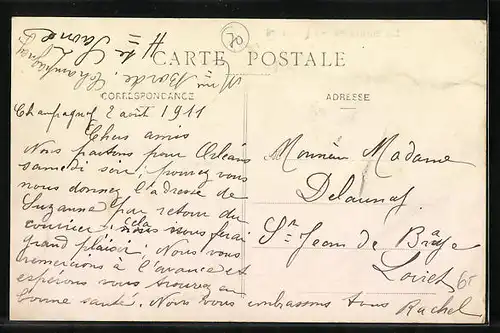 Hte Saone
Mme Borde. Champagney
CARTE POSTALE
CORRESPONDANCE
ADRESSE
Champagney 2 août 1911
Chers amis
Nous partons pour Orléans
samedi soir, pourez vous
nous donnez l'adresse de
Suzanne par retour du
courrier, cela nous ferai
grand plaisir. Nous vous
remercions à l'avance et
espérons vous trouvez en
bonne santé. Nous vous embrassons tous
Rachel
Monsieur Madame
Delaunay
St Jean de Braye
Loiret